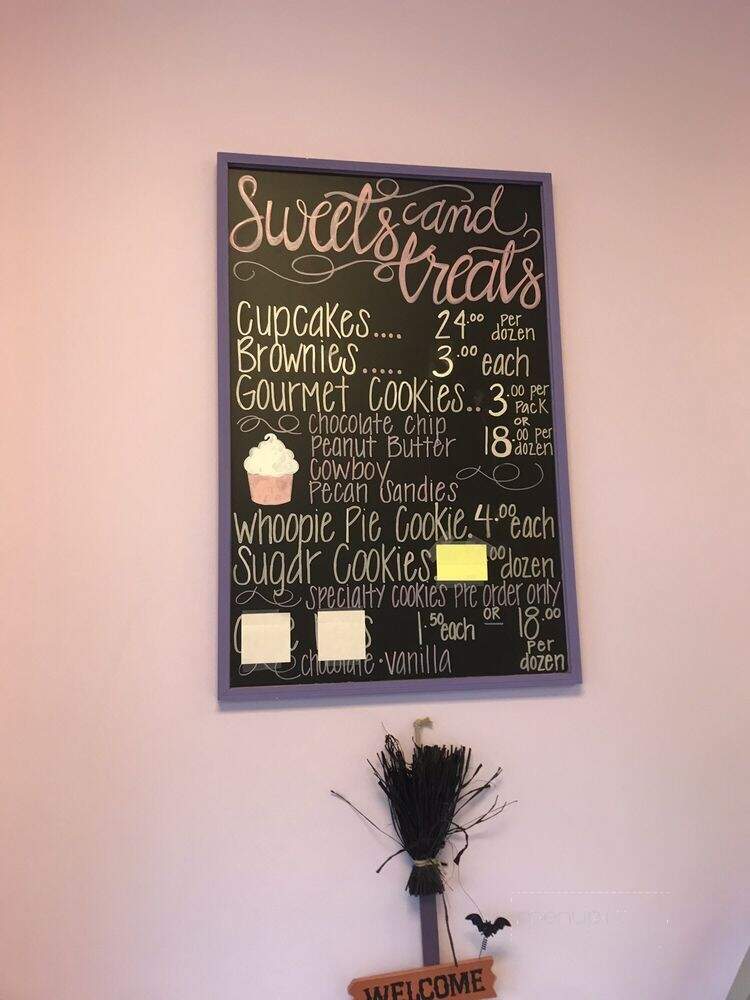 Sweets and
treats
Cupcakes.... 24.00 per dozen
Brownies..... 3.00 each
Gourmet Cookies.. 3.00 per Pack
OR
18.00 per dozen
chocolate chip
Peanut Butter
Cowboy
Pecan Sandies
Whoopie Pie Cookie. 4.00 each
Sugar Cookies .00 dozen
specialty cookies Pre order only
1.50 each OR 18.00 per dozen
chocolate • vanilla
WELCOME